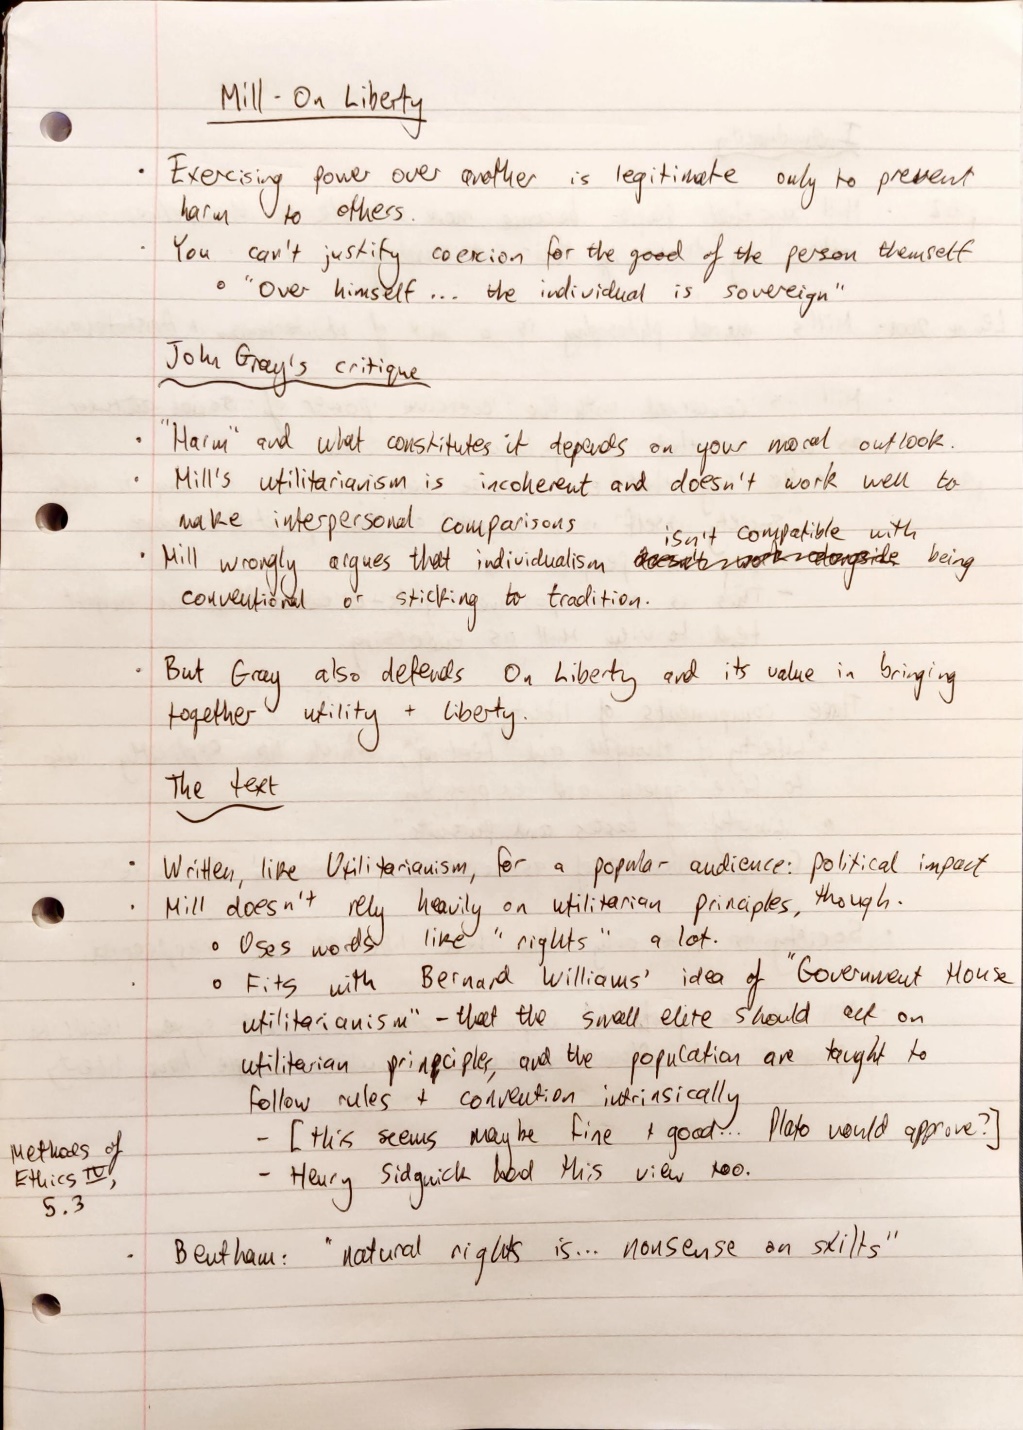 Mill - On Liberty
· Exercising power over another is legitimate only to prevent
harm to others.
· You can't justify coercion for the good of the person themself
∘ "Over himself... the individual is sovereign"
John Gray's critique
· "Harm" and what constitutes it depends on your moral outlook.
· Mill's utilitarianism is incoherent and doesn't work well to
make interpersonal comparisons
isn't compatible with
· Mill wrongly argues that individualism doesn't work alongside being
conventional or sticking to tradition.
· But Gray also defends On Liberty and its value in bringing
together utility + liberty.
The text
· Written, like Utilitarianism, for a popular audience: political impact
· Mill doesn't rely heavily on utilitarian principles, though.
∘ Uses words like "rights" a lot.
· ∘ Fits with Bernard Williams' idea of "Government House
utilitarianism" - that the small elite should act on
utilitarian principles, and the population are taught to
follow rules + convention intrinsically
- [this seems maybe fine + good... Plato would approve?]
- Henry Sidgwick had this view too.
Methods of
Ethics IV,
5.3
· Bentham: "natural rights is... nonsense on stilts"